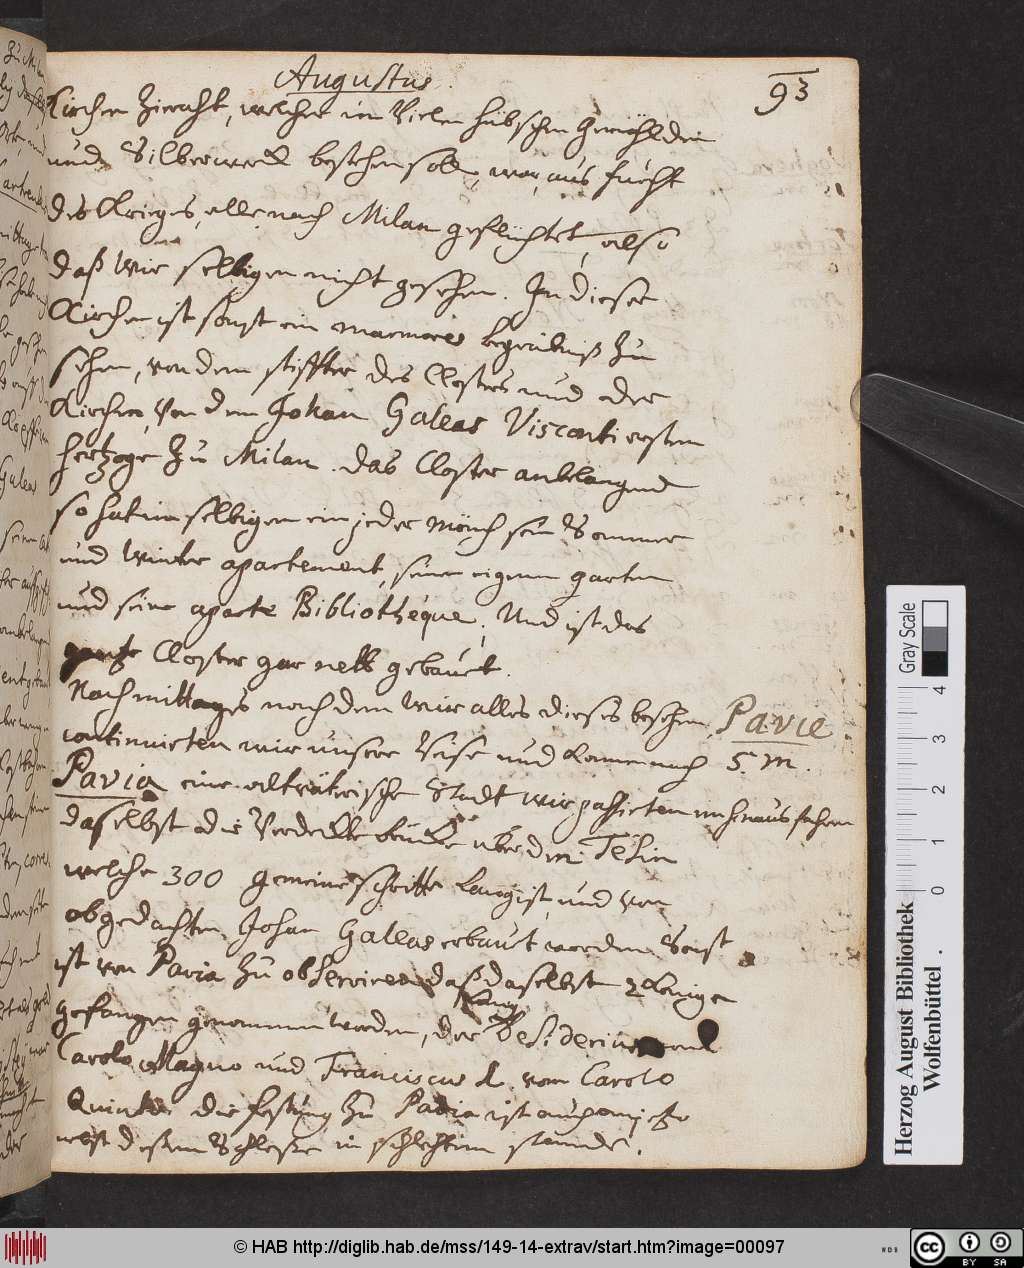 Augustus
93
Kirchen Zieraht, welcher in Vielen hübschen Gemählden
und Silberwerck bestehen soll, war, aus furcht
des Krieges, alle nach Milan geflüchtet, also
daß Wir selbigen nicht gesehen. In dieser
Kirchen ist sonst ein marmores begräbniß zu
sehen, von dem stiffter des Closters und der
Kirchen, Von dem Johan Galeas Visconti ersten
Hertzoge Zu Milan. Das Closter anbelangend
so hat in selbigen ein jeder Mönch sein Sommer
und Winter apartement, seinen eigenen garten
und seine aparte Bibliothéque, Und ist das
gantze Closter gar nett gebauet.
Nachmittages nach dem Wir alles dieses besehen, Pavie
continuirten wir unsere Reise und kamen nach 5. M.
Pavia eine altvätrische Stadt wir paßirten im hinaus fahren
daselbst die Verdeckte brücke über den Teßin
welche 300 gemeine schritte lang ist, und von
obgedachten Johan Galeas erbaut worden. Sonst
ist von Pavia Zu observiren daß daselbst 2 Könige
gefangen genommen worden, der König Desiderius von
Carolo Magno und Franciscus I. von Carolo
Quinto. Die festung Zu Pavia ist auch anjetzo
nebst dessen Schloße in schlechtem stande.
Gray Scale
0 1 2 3 4
Herzog August Bibliothek
Wolfenbüttel
© HAB http://diglib.hab.de/mss/149-14-extrav/start.htm?image=00097
cc BY SA